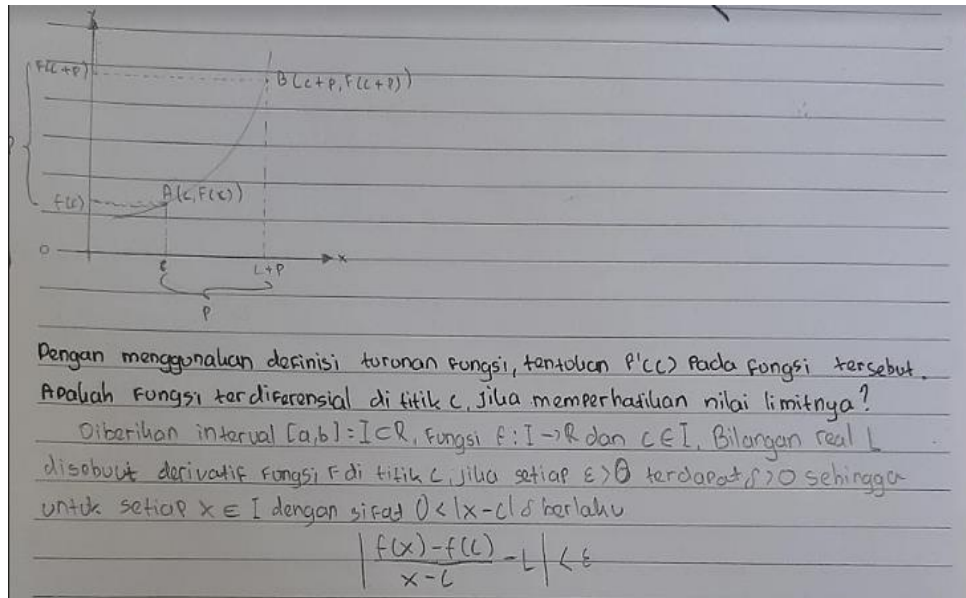 Y
F(c+p)
B (c+p, F(c+p))
A(c, F(x))
f(c)
0
x
c
L+P
P
Dengan menggunakan definisi turunan fungsi, tentukan f'(c) pada fungsi tersebut.
Apakah fungsi terdiferensial di titik c, jika memperhatikan nilai limitnya?
Diberikan interval [a,b] = I ⊂ R, fungsi f : I → R dan c ∈ I. Bilangan real L
disebut derivatif fungsi f di titik c, jika setiap ε > 0 terdapat δ > 0 sehingga
untuk setiap x ∈ I dengan sifat 0 < |x-c| δ berlaku
| f(x) - f(c) / x - c - L | < ε